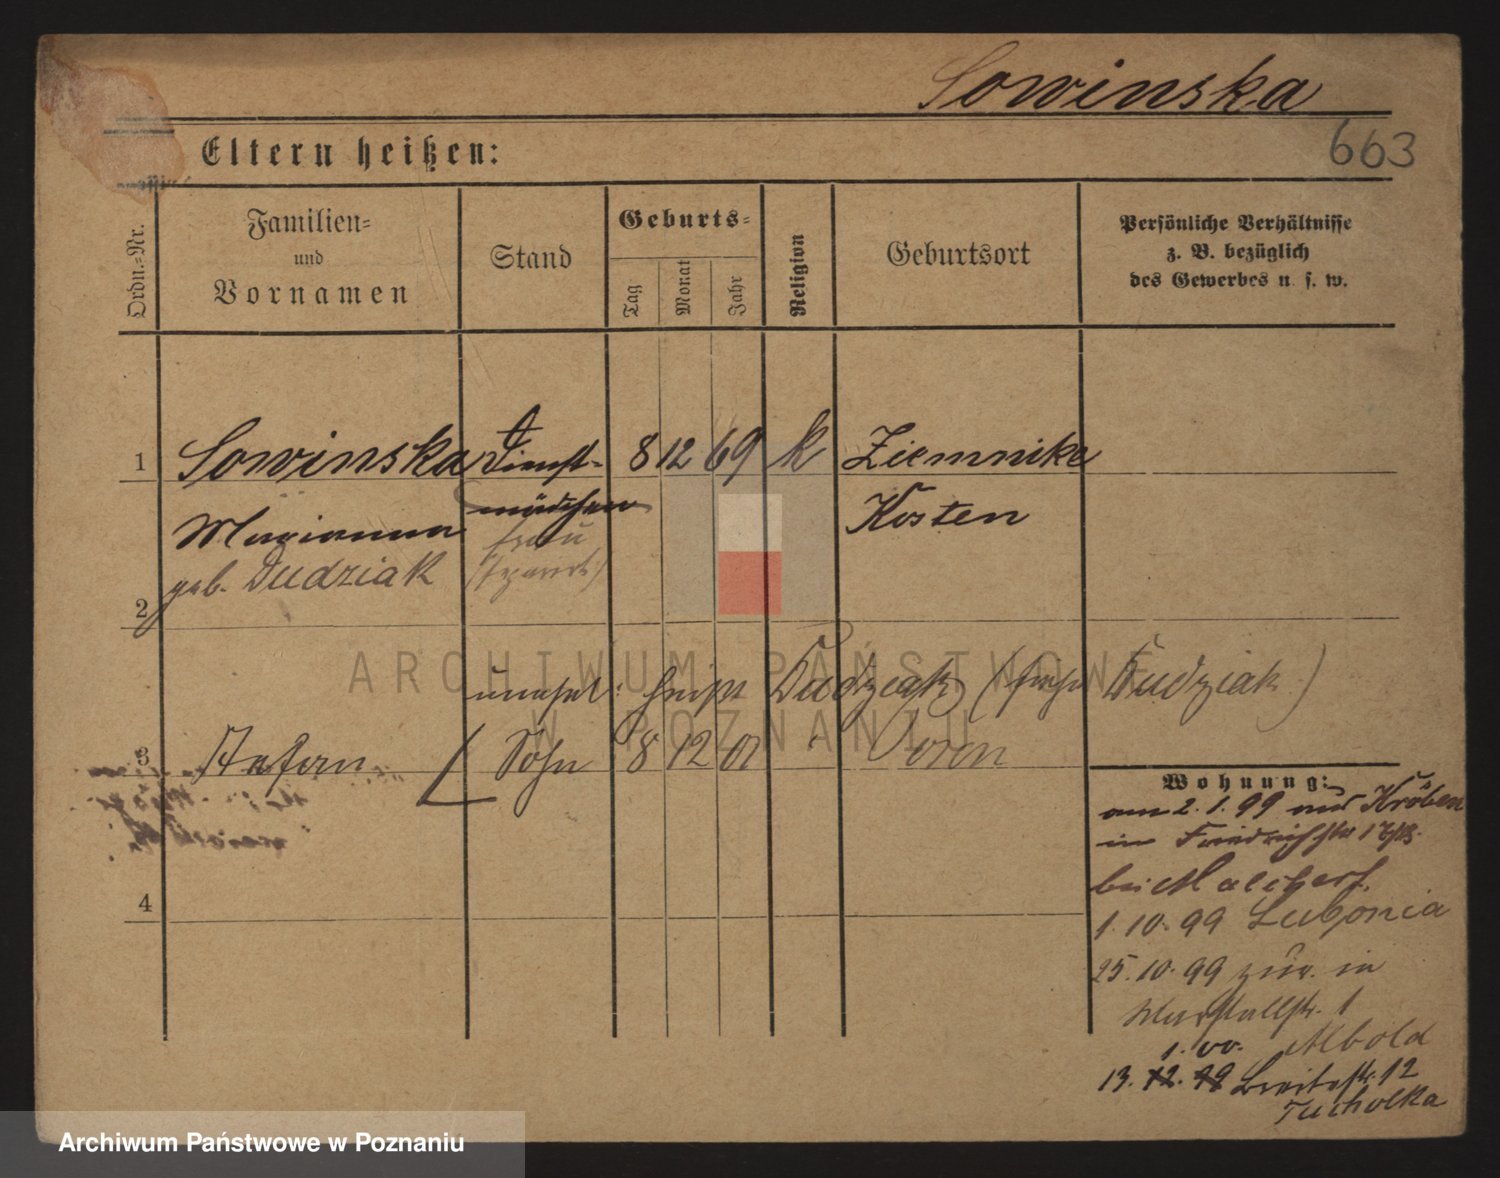 Sowinska
663
Eltern heißen:
Ordn.-Nr.
Familien-
und
Vornamen
Stand
Geburts-
Tag
Monat
Jahr
Religion
Geburtsort
Persönliche Verhältnisse
z. B. bezüglich
des Gewerbes u. s. w.
1
Sowinska
Dienst-
8 12 69
k
Ziemnike
mädchen
Kosten
Marianna
frau
geb. Dudziak
2
ARCHIWUM PAŃSTWOWE
W POZNANIU
Dudziak
Dudziak)
3
Stefan
Sohn
8 12 01
Posen
Wohnung:
am 2.1.99 aus Kröben
in Friedrichstr
bei
1.10.99 Lubonia
25.10.99 zur. in
1
1. 00.
13. 12. 99 Breitestr. 12
Tucholka
4
Archiwum Państwowe w Poznaniu